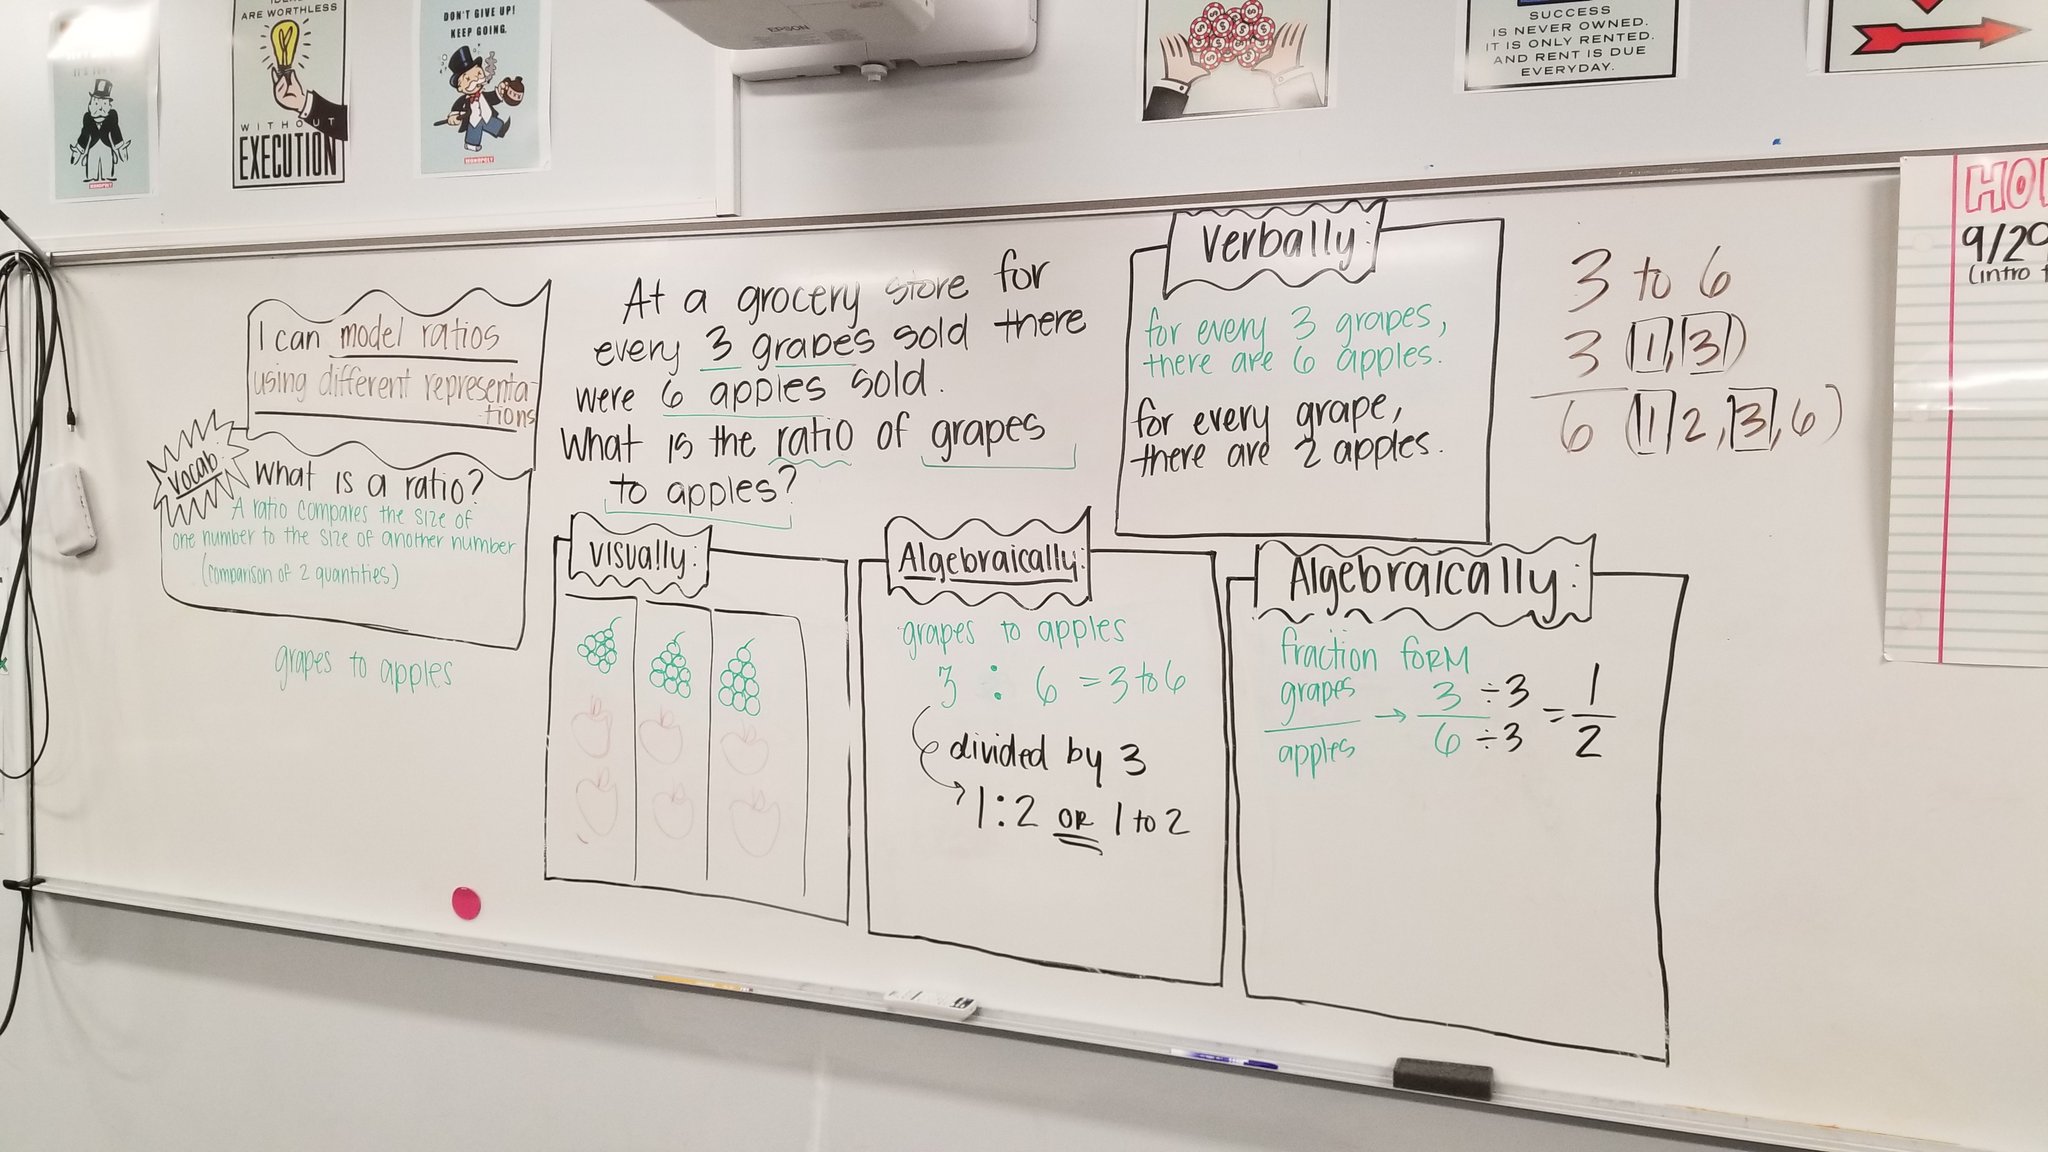 ARE WORTHLESS
WITHOUT
EXECUTION
MONOPOLY
DON'T GIVE UP!
KEEP GOING.
MONOPOLY
EPSON
SUCCESS
IS NEVER OWNED.
IT IS ONLY RENTED.
AND RENT IS DUE
EVERYDAY.
I can model ratios
using different representa-
tions
Vocab:
What is a ratio?
A ratio compares the size of
one number to the size of another number
(comparison of 2 quantities)
grapes to apples
At a grocery store for
every 3 grapes sold there
were 6 apples sold.
What is the ratio of grapes
to apples?
Visually:
Algebraically:
grapes to apples
3 : 6 = 3 to 6
divided by 3
1:2 OR 1 to 2
Verbally:
for every 3 grapes,
there are 6 apples.
for every grape,
there are 2 apples.
Algebraically:
fraction FORM
grapes → 3 ÷3 = 1
apples 6 ÷3 2
3 to 6
3 (1, 3)
6 (1, 2, 3, 6)
9/29
(intro